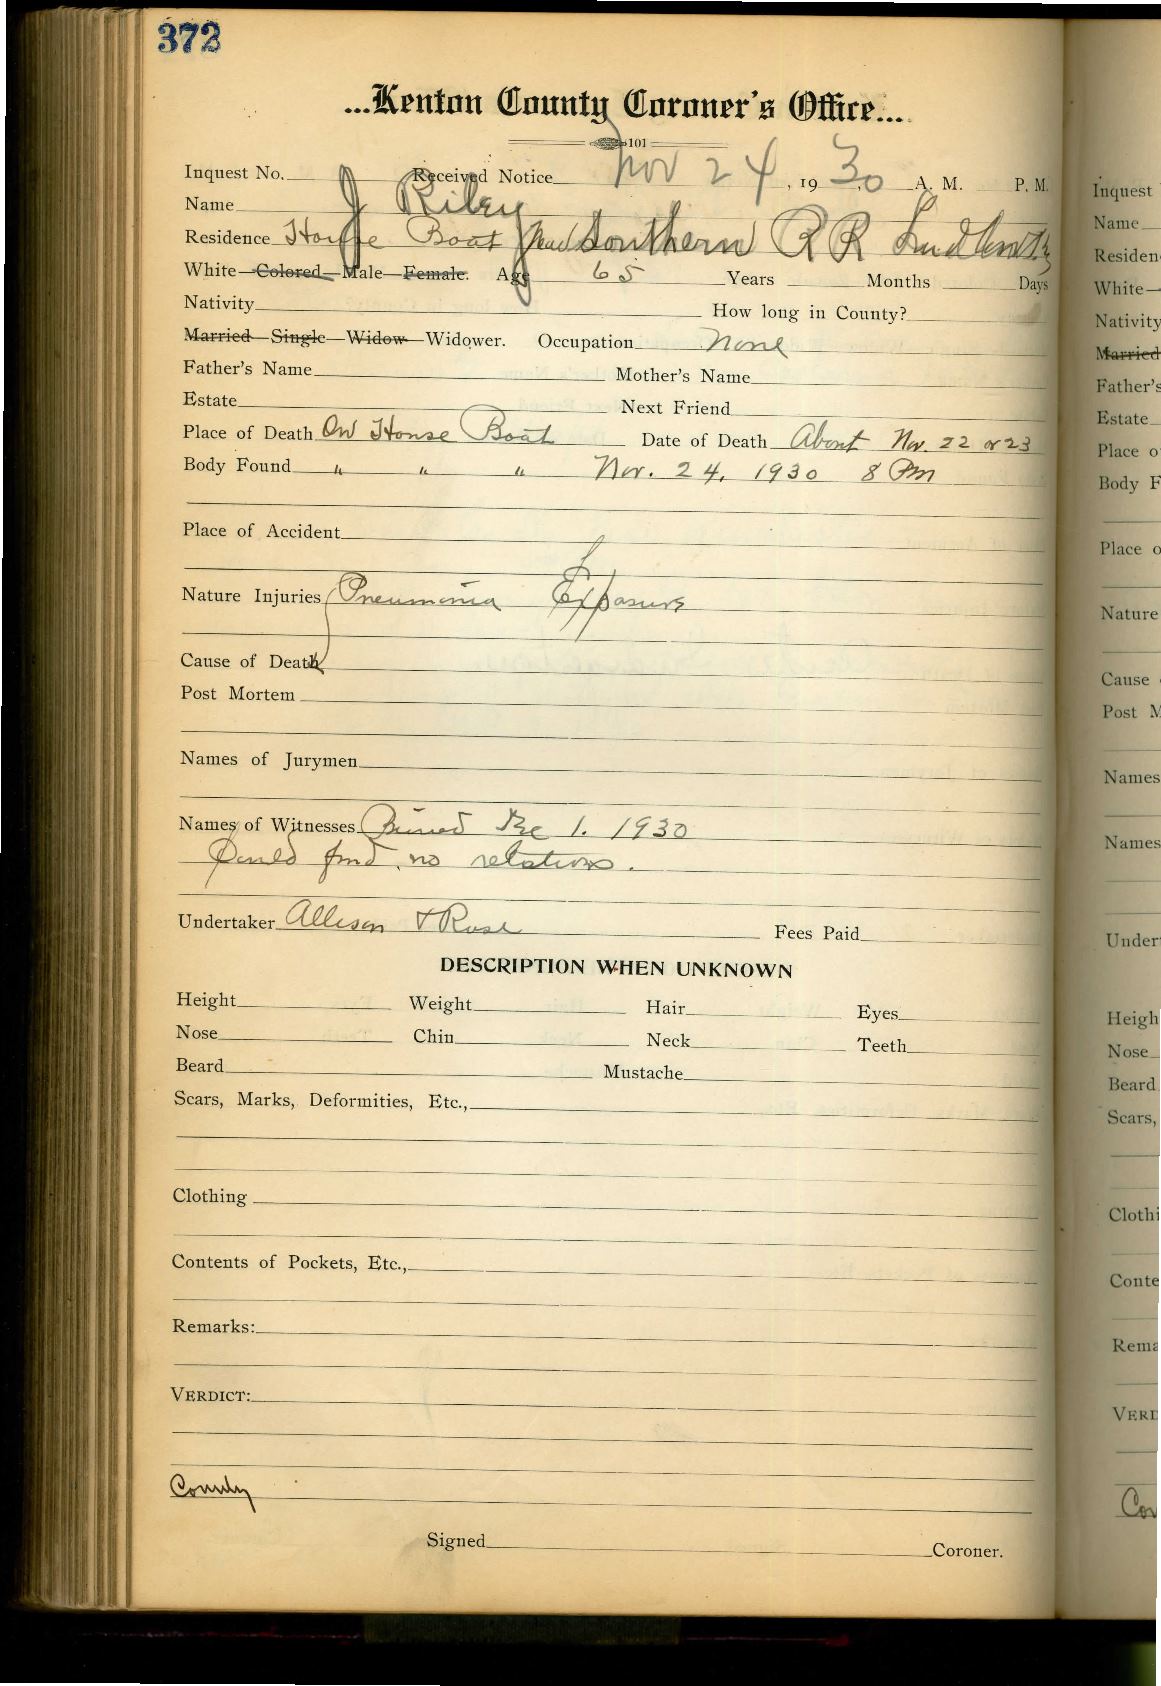 372
...Kenton County Coroner's Office...
101
Inquest No. Received Notice Nov 24, 1930 A. M. P. M.
Name J Riley
Residence House Boat Near Southern R R Ludlow Ky
White—Colored—Male—Female. Age 65 Years Months Days
Nativity How long in County?
Married—Single—Widow—Widower. Occupation none
Father's Name Mother's Name
Estate Next Friend
Place of Death On House Boat Date of Death About Nov. 22 or 23
Body Found " " " Nov. 24, 1930 8 Pm
Place of Accident
Nature Injuries Pneumonia Exposure
Cause of Death
Post Mortem
Names of Jurymen
Names of Witnesses Buried Dec 1. 1930
Could find no relations.
Undertaker Allison & Rose Fees Paid
DESCRIPTION WHEN UNKNOWN
Height Weight Hair Eyes
Nose Chin Neck Teeth
Beard Mustache
Scars, Marks, Deformities, Etc.,
Clothing
Contents of Pockets, Etc.,
Remarks:
VERDICT:
County
Signed Coroner.
Inquest
Name
Residen
White—
Nativity
Married
Father's
Estate
Place o
Body F
Place o
Nature
Cause
Post M
Names
Names
Under
Heigh
Nose
Beard
Scars,
Clothi
Conte
Rema
VERD
Co